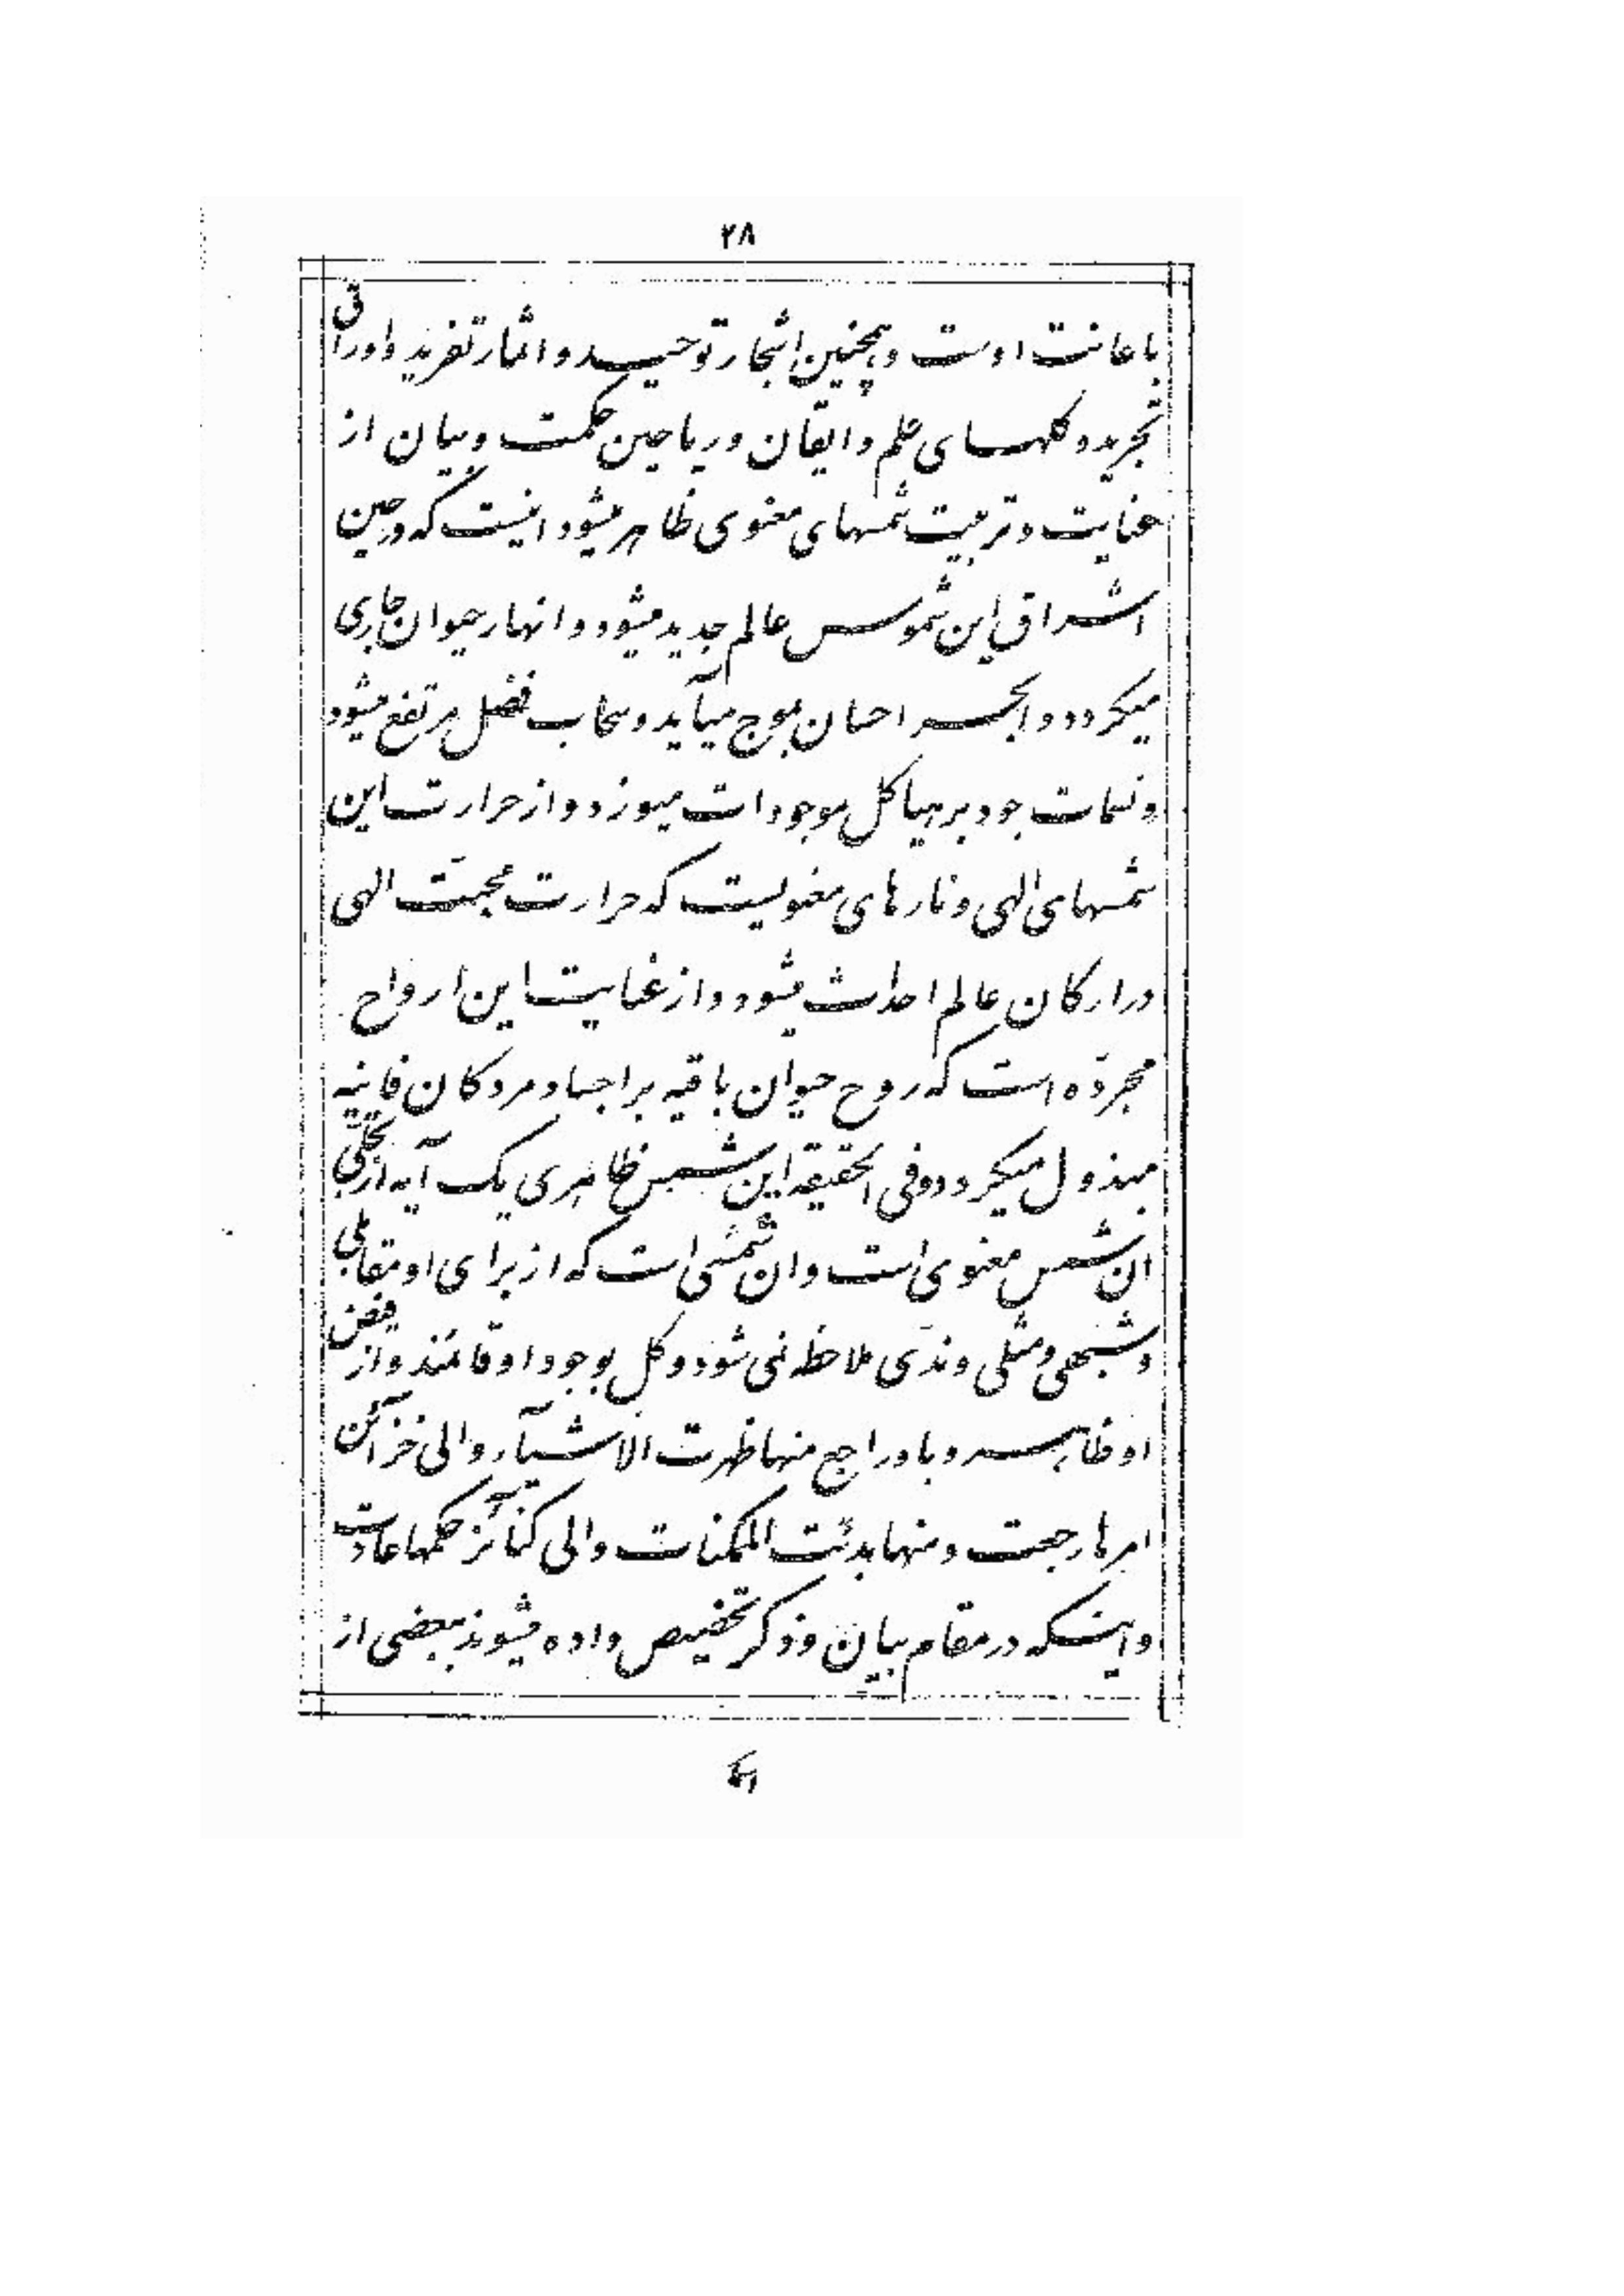 ۲۸
باعانت اوست و همچنین اشجار توحید و اثمار تفرید و اوراق
تجرید و گلهای علم و ایقان و ریاحین حکمت و بیان از
عنایت و تربیت شمسهای معنوی ظاهر میشود اینست که در حین
اشراق این شموس عالم جدید میشود و انهار حیوان جاری
میگردد و ابحر احسان بموج میآید و سحاب فضل مرتفع میشود
و نسمات جود بر هیاکل موجودات میوزد و از حرارت این
شمسهای الهی و نارهای معنویست که حرارت محبّت الهی
در ارکان عالم احداث میشود و از عنایت این ارواح
مجرّده است که روح حیوان باقیه بر اجساد مردگان فانیه
مبذول میگردد و فی الحقیقه این شمس ظاهری یک آیه از تجلّی
ان شمس معنوی است و ان شمسی است که از برای او مقابلی
و شبهی و مثلی و ندّی ملاحظه نمی شود و کل بوجود او قائمند و از فیض
او ظاهر و باو راجع منها ظهرت الاشیآء و الی خزآئن
امرها رجعت و منها بدئت الممکنات و الی کنآئز حکمها عادت
و اینکه در مقام بیان و ذکر تخصیص داده میشوند ببعضی از